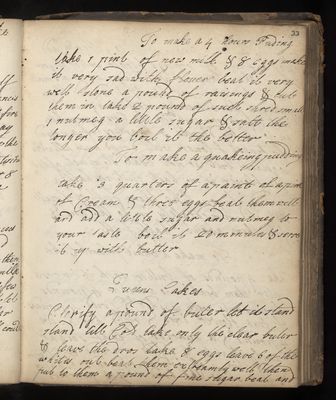 33
To make a 4 hours Puding
take 1 pint of new milk & 8 Eggs make
it very sad with flower beat it very
well stone a pound of raisongs & put
them in take 2 pound of suet shred small
1 nutmeg a little sugar & salt the
longer you boil it the better
To make a quakeing pudding
take 3 quarters of a paint of
of Cream & three eggs beat them well
and add a little sugar and nutmeg to
your taste boil it 20 minnits & serve
it up with butter
Queens Cakes
Clerify a pound of buter let it stand
stand till Cold take only the clear buter
& leave the dros take 8 eggs leave 6 of the
whites out beat them extreamly well then
put to them a pound of fine sugar beat and